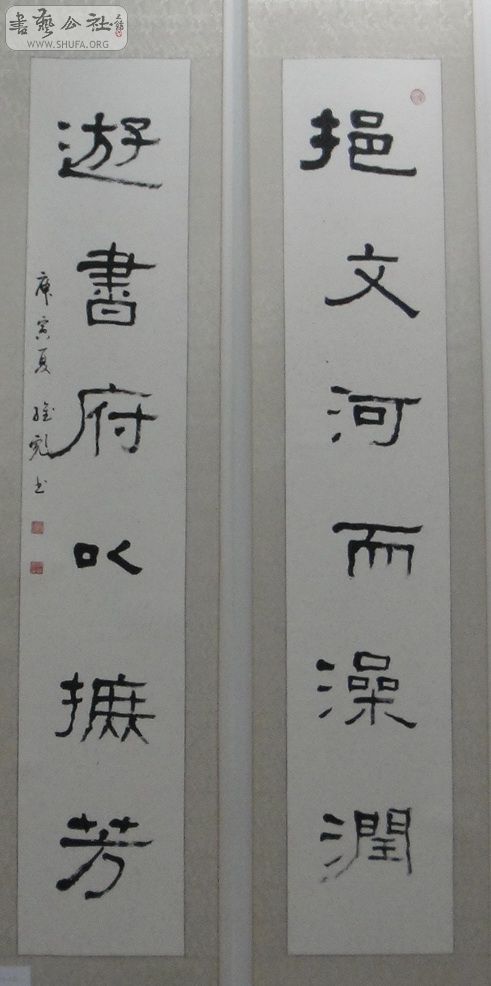 書藝公社
WWW.SHUFA.ORG
挹文河而澡潤
遊書府以摭芳
庚寅夏 彪書